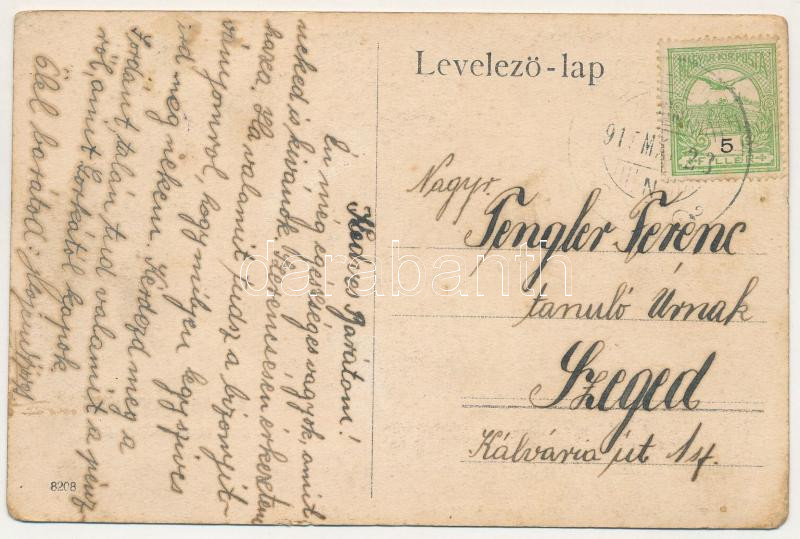 Levelező-lap
MAGYAR KIR. POSTA
5
FILLÉR
Nagyr.
Tengler Ferenc
tanuló Úrnak
Szeged
Kálvária út 14.
Kedves Barátom!
Én meg egésséges vagyok, amit
neked is kivánok. Szerencsésen érkeztem
haza. Ha valamit tudsz a bizonyit-
ványomról, hogy milyen légy szives
ird meg nekem. Kérdezd meg a
talán tud valamit a pénz-
ről, amit kapok
Ölel barátod:
8208
darabanth